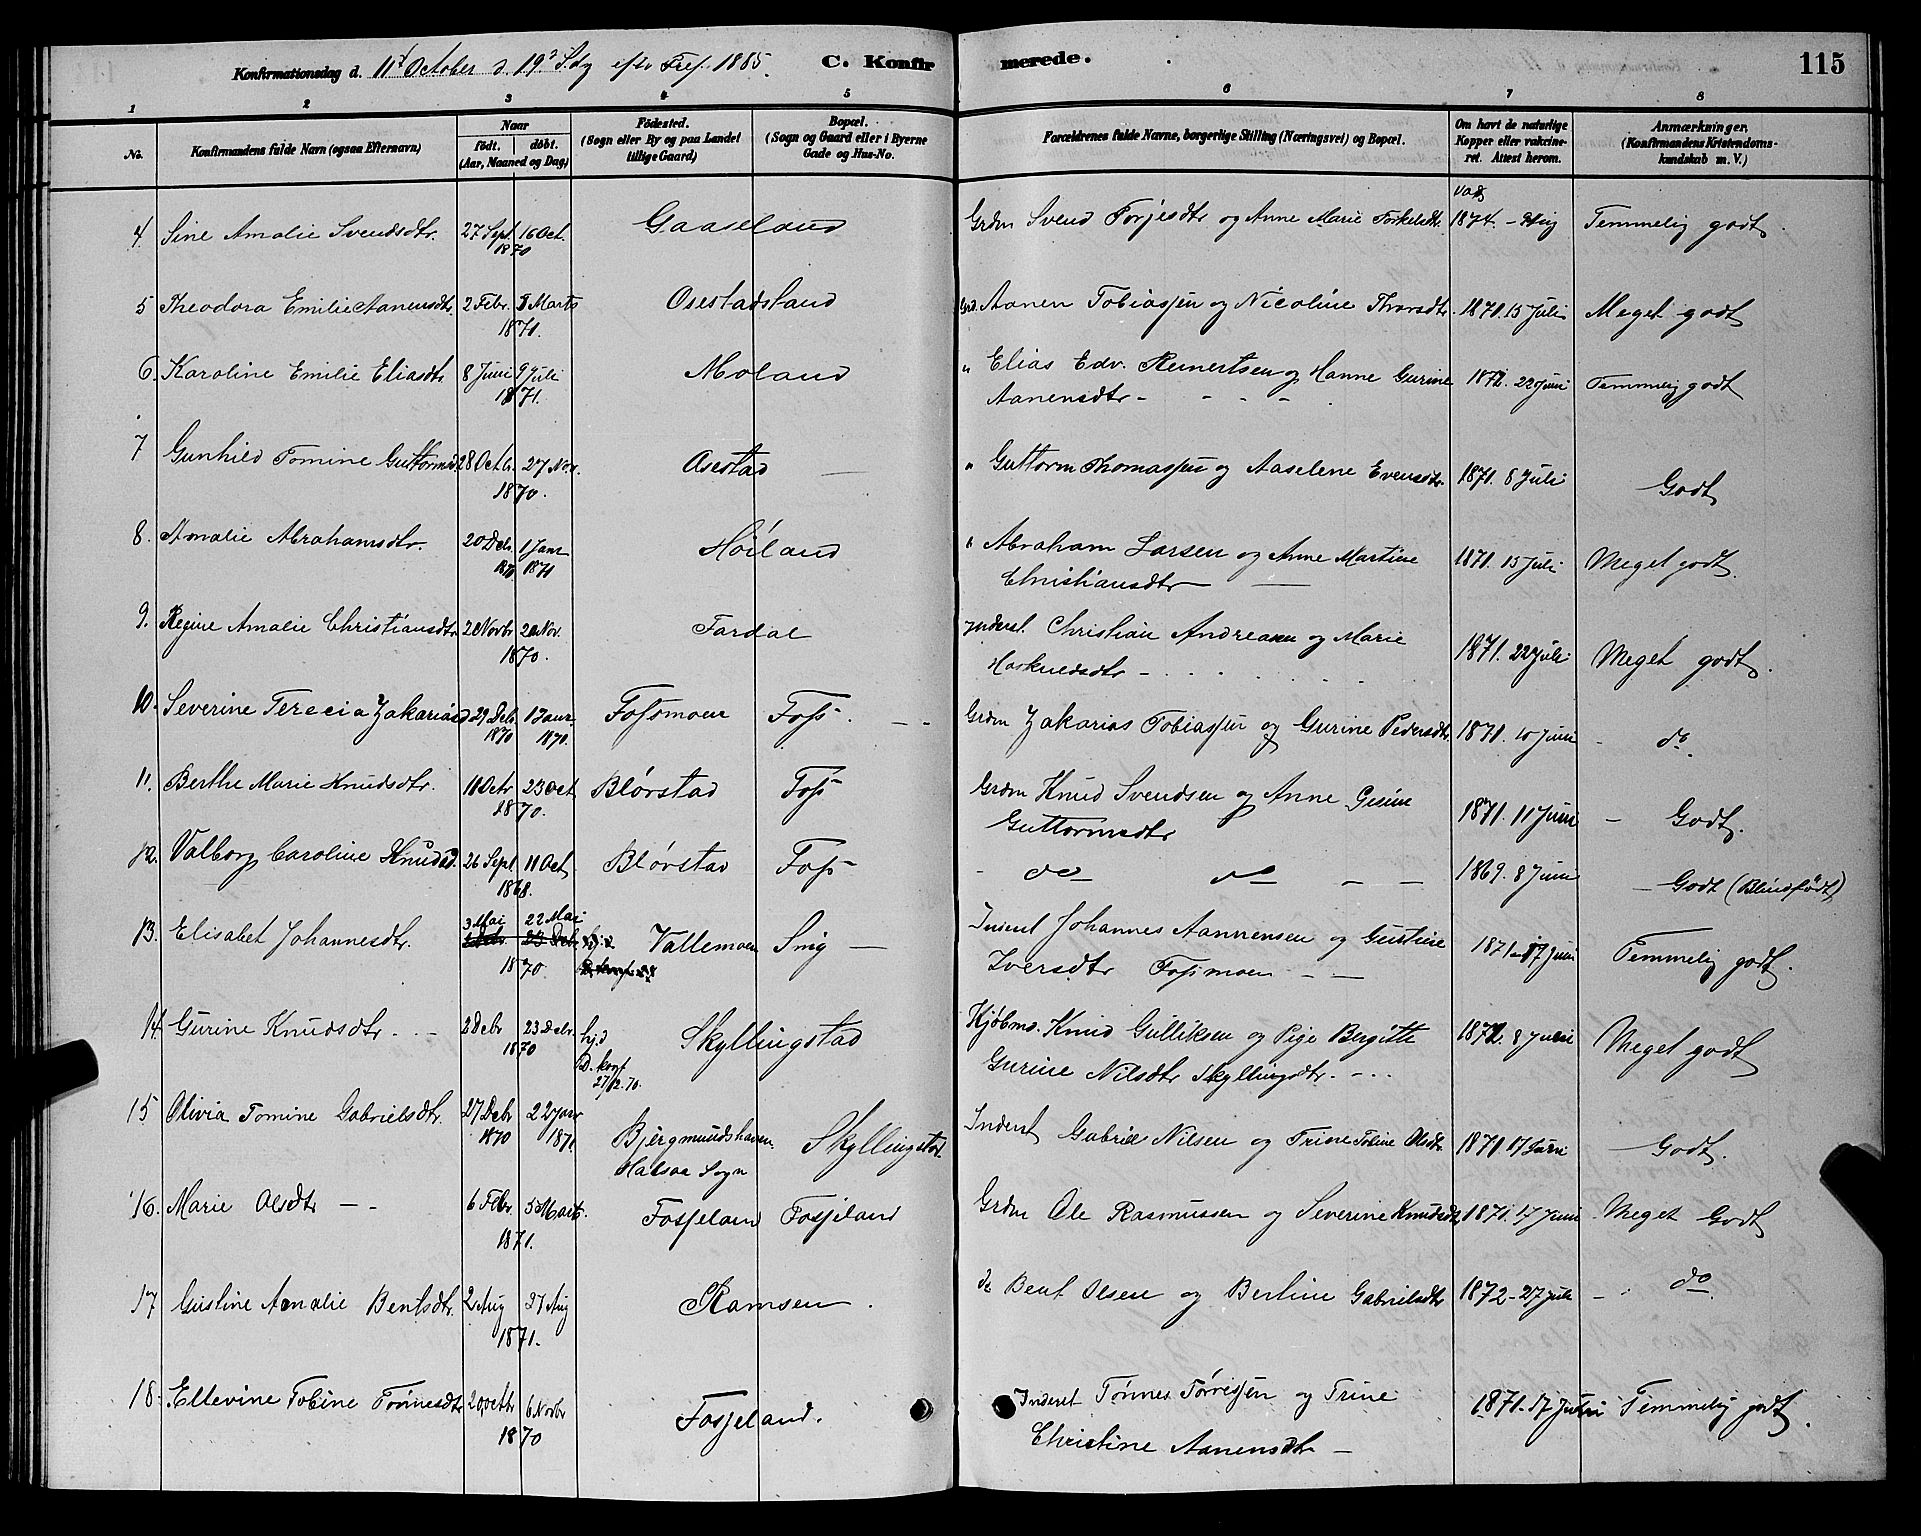 Konfirmationsdag d. 11t October d. 19d Sdg efter Tref. 1885. C. Konfirmerede. 115
1 2 3 4 5 6 7 8
No. Konfirmandens fulde Navn (ogsaa Efternavn) Naar født. døbt. (Aar, Maaned og Dag) Födested. (Sogn eller By og paa Landet tillige Gaard) Bopæl. (Sogn og Gaard eller i Byerne Gade og Hus-No. Forældrenes fulde Navne, borgerlige Stilling (Næringsvei) og Bopæl. Om havt de naturlige Kopper eller vakcineret. Attest herom. Anmærkninger. (Konfirmandens Kristendomskundskab m. V.)
4. Sine Amalie Svendsdtr. 27 Sept 16 Oct. 1870 Gaaseland Grdm Svend Torjesdtr og Anne Marie Torkelsdtr. vac 1874. Temmelig godt.
5 Theodora Emilie Aanensdtr. 2 Febr. 5 Marts 1871. Osestadstand Aanen Tobiassen og Nicoline Thorsdtr. 1871. 15 Juli Meget godt
6. Karoline Emilie Eliasdtr 8 Juni 9 Juli 1871. Moland " Elias Edv. Reinertsen og Hanne Gurine
Aanensdtr - - - - 1872. 22 Juni Temmelig godt
7 Gunhild Tomine Guttormsd. 28 Octb. 27 Nov. 1870. Osestad — " Guttorm Thomassen og Aaselene Evensdtr 1871. 8 Juli Godt
8. Amalie Abrahamsdtr. 20 Debr. 1870 1 Janr 1871 Høiland " Abraham Larsen og Anne Martine
Christiansdtr — 1871. 15 Juli Meget godt.
9. Regine Amalie Christiansdtr 2 Novbr 20 Nov. 1870. Tardal Inderst. Christian Andreasen og Marie
Haskuldsdtr - 1871. 22 Juli Meget godt.
10. Severine Terecia Zakariasd 29 Debr 1870 1 Janr 1870. Fossmoen Foss. — Grdm Zakarias Tobiassen og Gurine Pedersdtr. 1871. 10 Juni - do
11. Berthe Marie Knudsdtr. 10 Octr 23 Oct 1870. Blørstad Foss Grdm Knud Svendsen og Anne Gurine
Guttormsdtr 1871. 11 Juni - Godt.
12. Valborg Caroline Knudsd. 26 Sept 11 Oct 1868. Blørstad Foss - do do — — 1869. 8 Juni — Godt (Blindfødt)
13. Elisabet Johannesdtr. 3 Mai 22 Mai 1870 Vallemoen Snig — Inderst Johannes Aanensen og Gustine
Iversdtr Fossmoen — — 1871. 17 Juni Temmelig godt.
14. Gurine Knudsdtr. - - 2 Debr 23 Debr. 1870 hj.d D. konf 27/12.70. Skyllingstad Kjøbmd. Knud Gulliksen og Pige Bergitte
Gurine Nilsdtr Skyllingsdtr. - .. 1872. 8 Juni Meget godt
15 Olivia Tomine Gabrielsdtr. 27 Debr 1870 22 Janr 1871. Bjergmundshavn Halsaa Sogn Skyllingstad Inderst Gabriel Nilsen og Trine Tobine Olsdtr. 1871. 17 Juni Godt.
16. Marie Olsdtr — - 6 Febr. 5 Marts. 1871. Fosseland Fosseland Grdm Ole Rasmussen og Severine Knudsdtr 1871. 17 Juni Meget Godt
17 Gustine Amalie Bentsdtr. 2 Aug 27 Aug 1871. Ramsen. do Bent Olsen og Bertine Gabrielsdtr 1872 - 27 Juli - do
18. Ellevine Tobine Tønnesdtr 20 octbr 6 Novbr 1870 Fosseland. Inderst Tønnes Tørressen og Trine
Christine Aanensdtr — 1871. 17 Juni Temmelig godt.